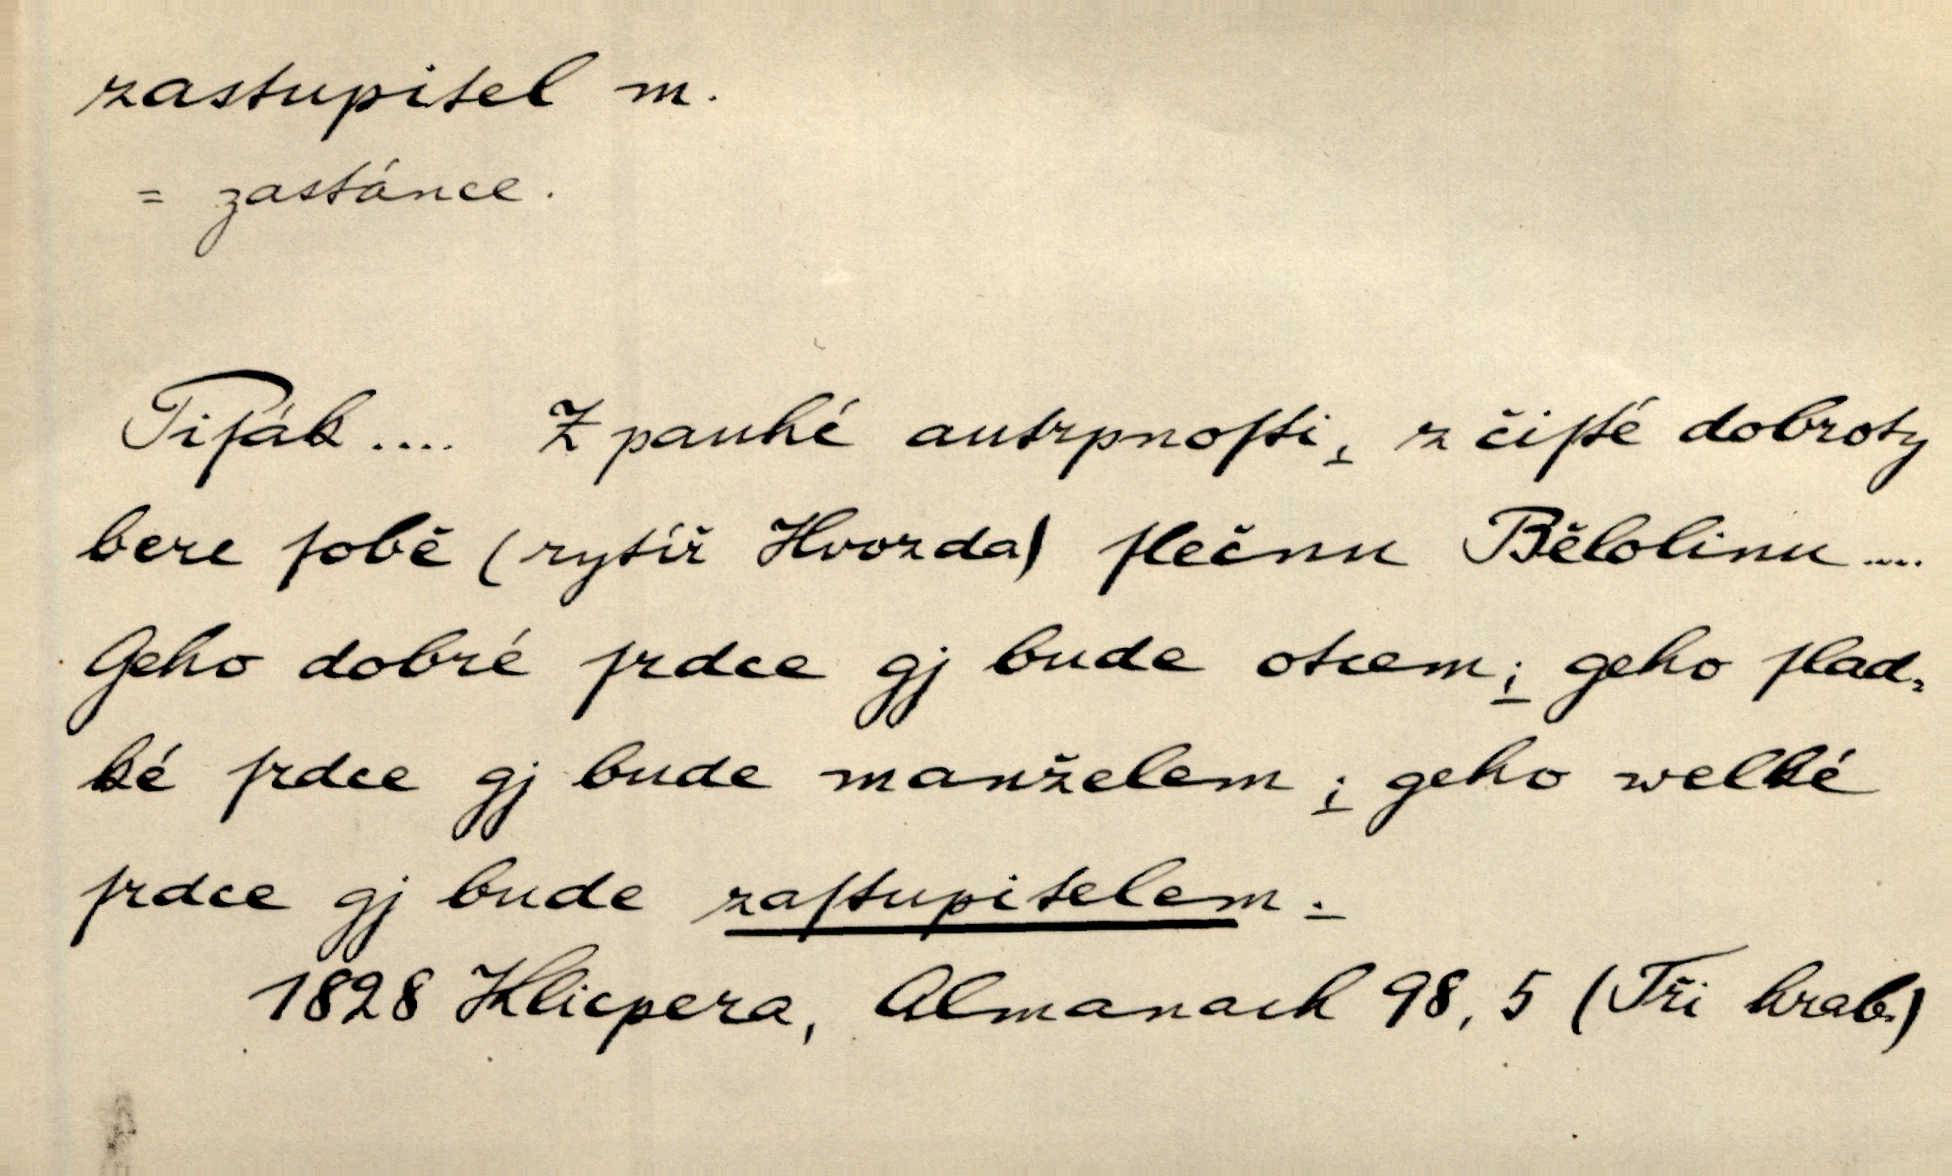 zastupitel m.
= zastánce.
Piſák .... Z pauhé autrpnoſti, z čiſté dobroty
bere ſobě (rytíř Hvozda) ſlečnu Bělolinu ....
Geho dobré ſrdce gj bude otcem; geho ſlad-
ké ſrdce gj bude manželem; geho welké
ſrdce gj bude zaſtupitelem.
1828 Klicpera, Almanach 98, 5 (Tři hrab.)